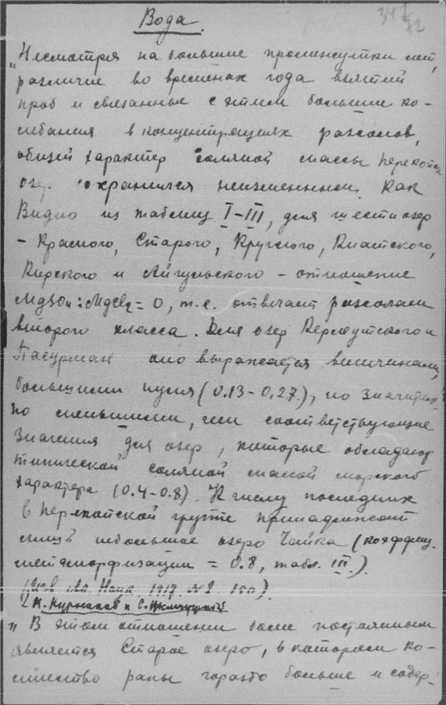 Вода.
347
32
„Несмотря на большие промежутки лет,
различие во временах года взятий
проб и связанные с этим большие ко-
лебания в концентрациях рассолов,
общий характер соляной массы перекопск
озер сохранился неизменным. Как
видно из таблиц I–III, для шести озер
– Красного, Старого, Круглого, Киатского,
Кирского и Айгульского – отношение
MgSO4 : MgCl2 = 0, т.е. отвечает рассолам
второго класса. Для озер Керлеутского и
оно выражается величинами,
большими нуля (0.13–0.27), но значитель
но меньшими, чем соответствующие
значения для озер, которые обладают
типической соляной массой морского
характера (0.4–0.8). К числу последних
в перекопской группе принадлежит
лишь небольшое озеро Чайка (коэффиц.
метаморфизации = 0.8, табл. III.)
(Изв. Ак. Наук, 1917. №2 150)
Н. Курнаков и С. Жемчужный
„В этом отношении более постоянным
является Старое озеро, в котором ко-
личество рапы гораздо больше и содер-